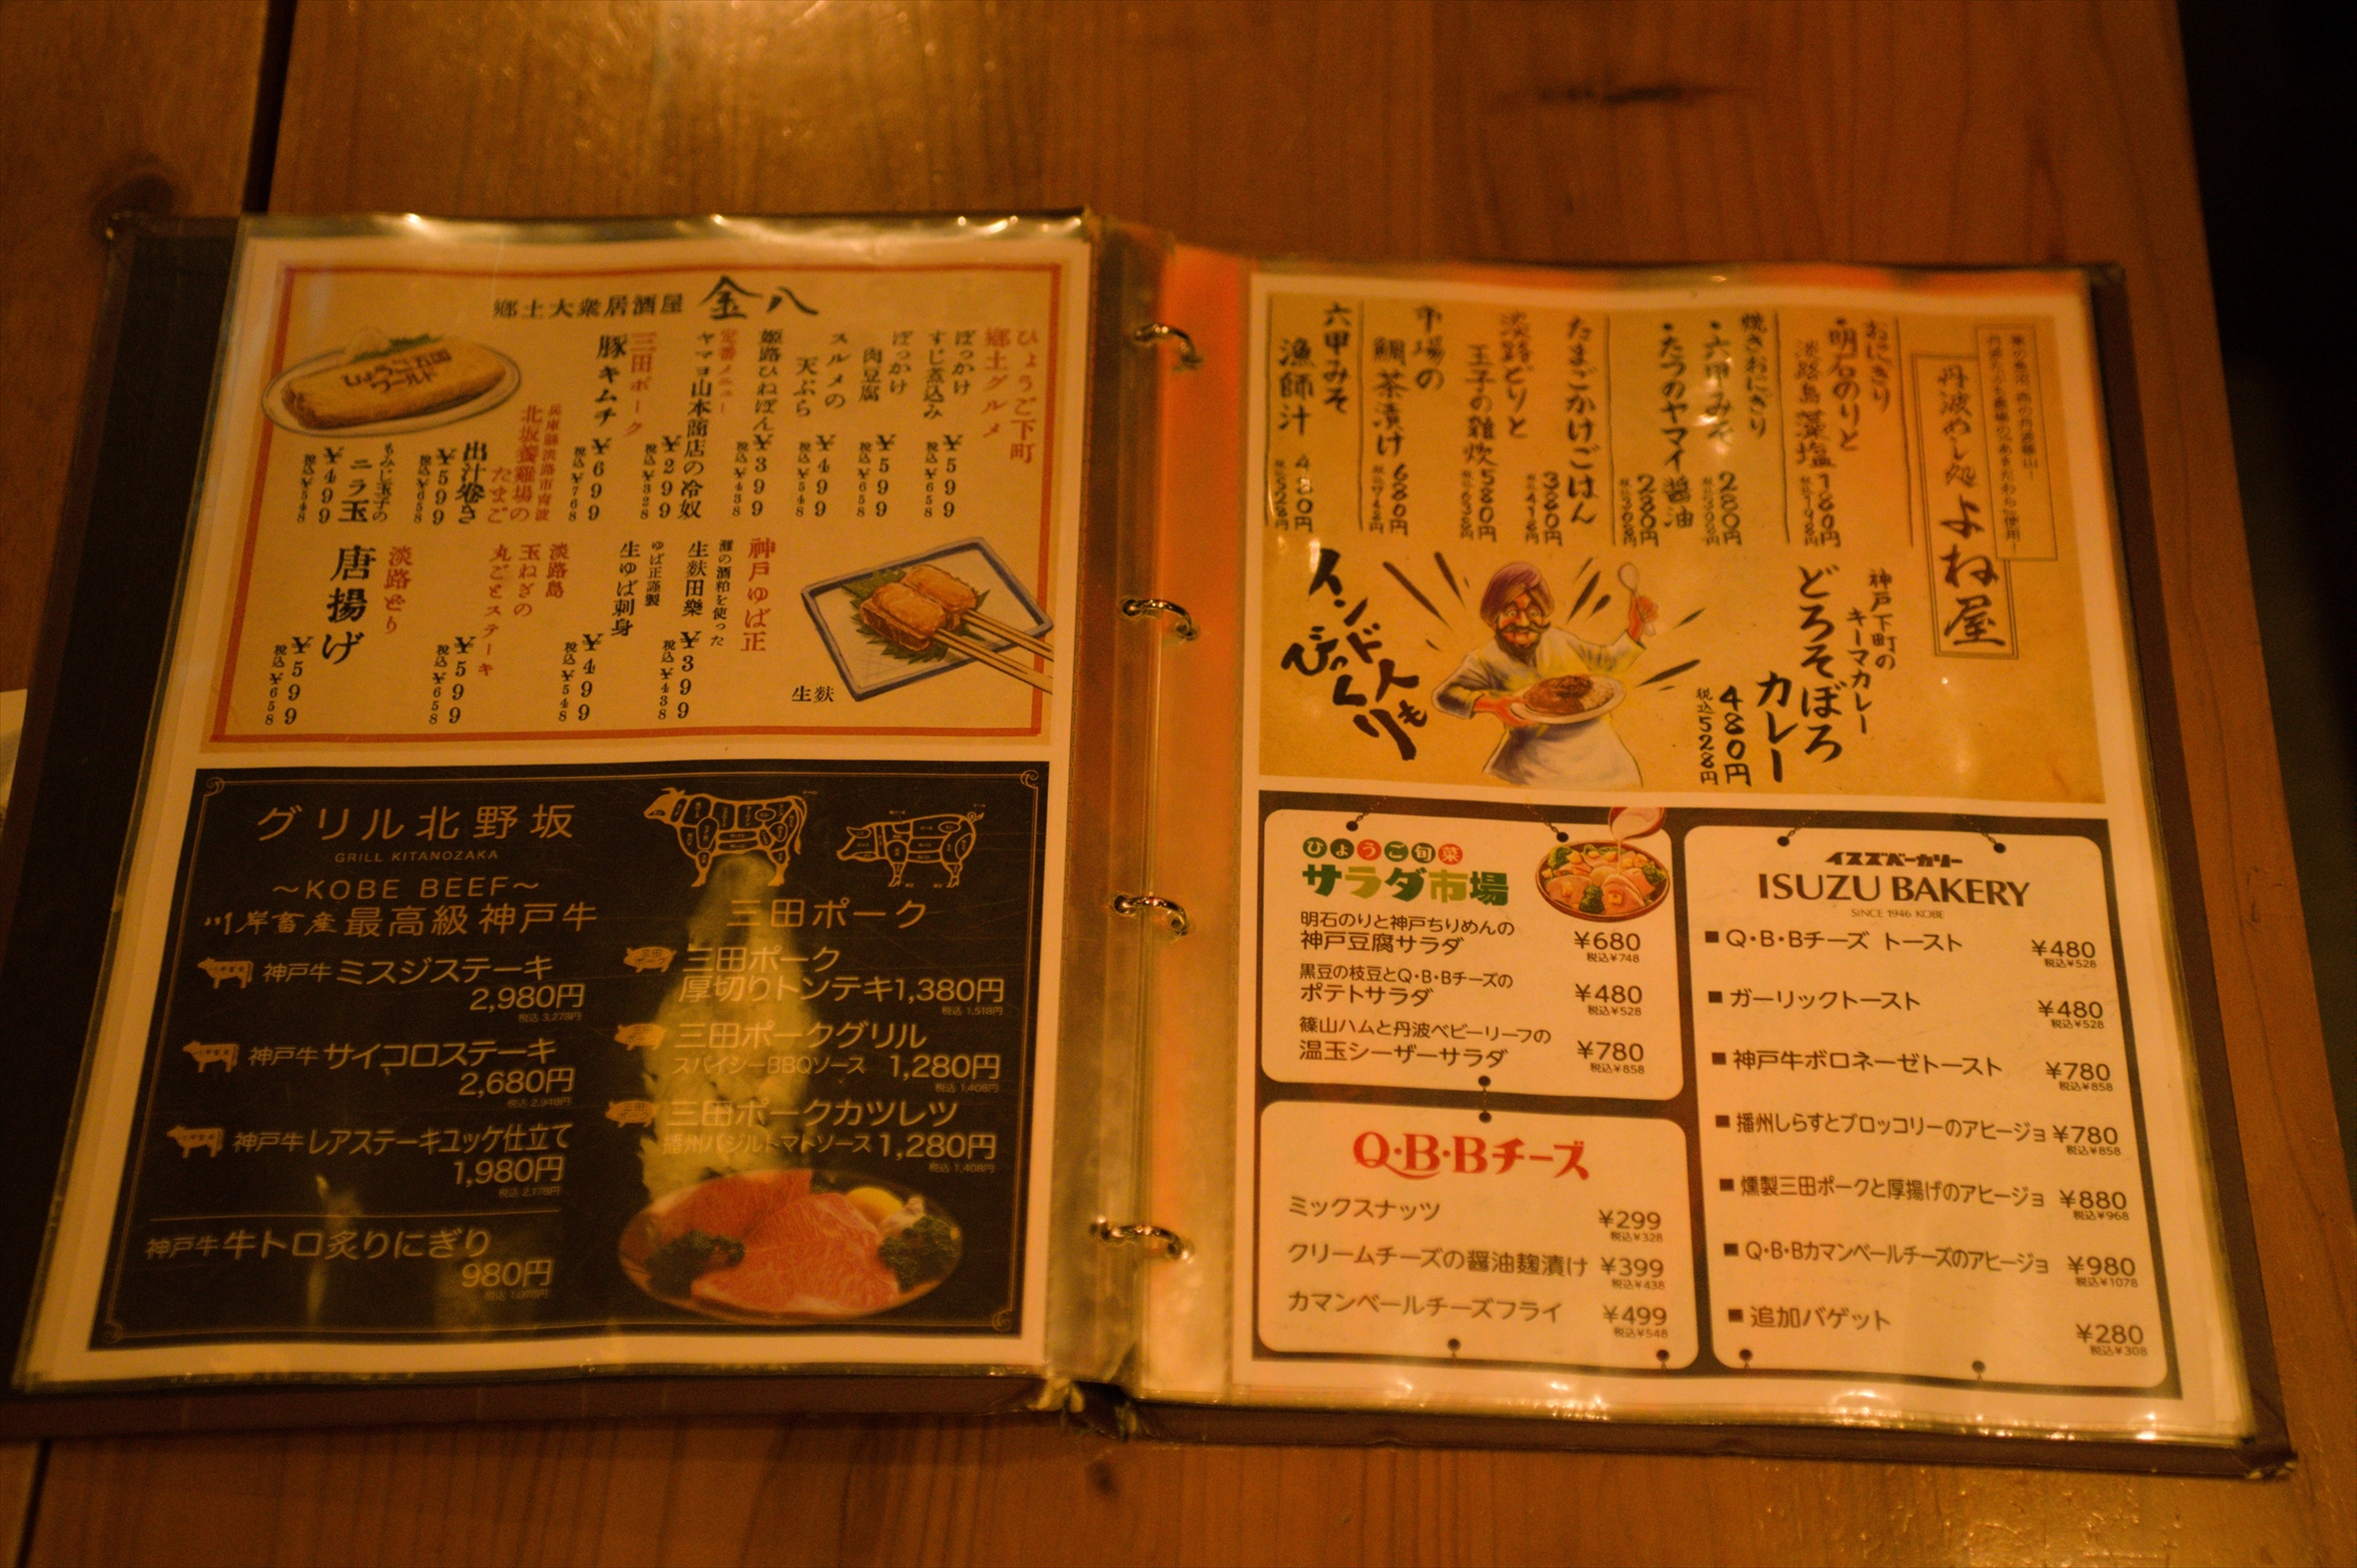 郷土大衆居酒屋 金八
ひょうご五国
ワールド
ひょうご下町
郷土グルメ
ぼっかけ
すじ煮込み
¥599
税込¥658
ぼっかけ
肉豆腐
¥599
税込¥658
スルメの
天ぷら
¥499
税込¥548
姫路ひねぽん
¥399
税込¥438
定番メニュー
ヤマヨ山本商店の冷奴
¥299
税込¥328
三田ポーク
豚キムチ
¥699
税込¥768
兵庫縣淡路市育波
北坂養鶏場の
たまご
出汁巻き
¥599
税込¥658
もみじ玉子の
ニラ玉
¥499
税込¥548
神戸ゆば正
灘の酒粕を使った
生麩田樂
¥399
税込¥438
ゆば正謹製
生ゆば刺身
¥499
税込¥548
淡路島
玉ねぎの
丸ごとステーキ
¥599
税込¥658
淡路どり
唐揚げ
¥599
税込¥658
生麩
グリル北野坂
GRILL KITANOZAKA
～KOBE BEEF～
川岸畜産 最高級神戸牛
神戸牛 ミスジステーキ
2,980円
税込 3,278円
神戸牛 サイコロステーキ
2,680円
税込 2,948円
神戸牛 レアステーキユッケ仕立て
1,980円
税込 2,178円
神戸牛 牛トロ炙りにぎり
980円
税込 1,078円
三田ポーク
三田ポーク
厚切りトンテキ 1,380円
税込 1,518円
三田ポークグリル
スパイシーBBQソース 1,280円
税込 1,408円
三田ポークカツレツ
播州バジルトマトソース 1,280円
税込 1,408円
丹波めし処 よね屋
おにぎり
・明石のりと
淡路島藻塩
180円
税込198円
焼きおにぎり
・六甲みそ
280円
税込308円
・たつのヤマイ醤油
280円
税込308円
たまごかけごはん
380円
税込418円
淡路どりと
玉子の雑炊
580円
税込638円
市場の
鯛茶漬け
680円
税込748円
六甲みそ
漁師汁
480円
税込528円
神戸下町の
キーマカレー
どろそぼろ
カレー
480円
税込528円
インド人も
びっくり
ひょうご旬菜
サラダ市場
明石のりと神戸ちりめんの
神戸豆腐サラダ ¥680
税込¥748
黒豆の枝豆とQ・B・Bチーズの
ポテトサラダ ¥480
税込¥528
篠山ハムと丹波ベビーリーフの
温玉シーザーサラダ ¥780
税込¥858
Q・B・Bチーズ
ミックスナッツ ¥299
税込¥328
クリームチーズの醤油麹漬け ¥399
税込¥438
カマンベールチーズフライ ¥499
税込¥548
イスズベーカリー
ISUZU BAKERY
SINCE 1946 KOBE
■Q・B・Bチーズ トースト ¥480
税込¥528
■ガーリックトースト ¥480
税込¥528
■神戸牛ボロネーゼトースト ¥780
税込¥858
■播州しらすとブロッコリーのアヒージョ ¥780
税込¥858
■燻製三田ポークと厚揚げのアヒージョ ¥880
税込¥968
■Q・B・Bカマンベールチーズのアヒージョ ¥980
税込¥1078
■追加バゲット ¥280
税込¥308